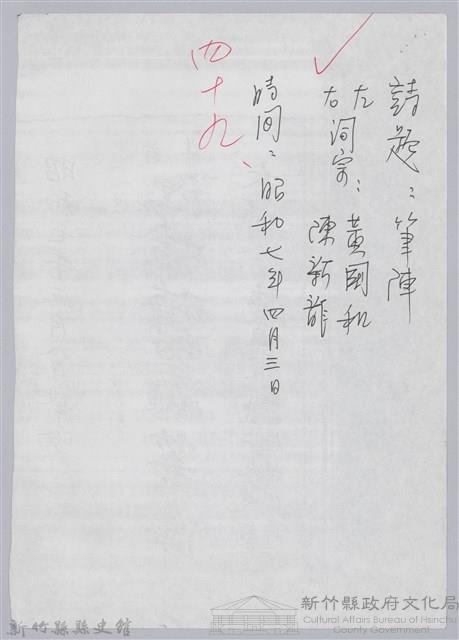 詩題：筆陣
左右詞宗：黃國和
陳新龍
時間：昭和七年四月三日
四十九、
新竹縣縣史館
新竹縣政府文化局
Cultural Affairs Bureau of Hsinchu
County Government